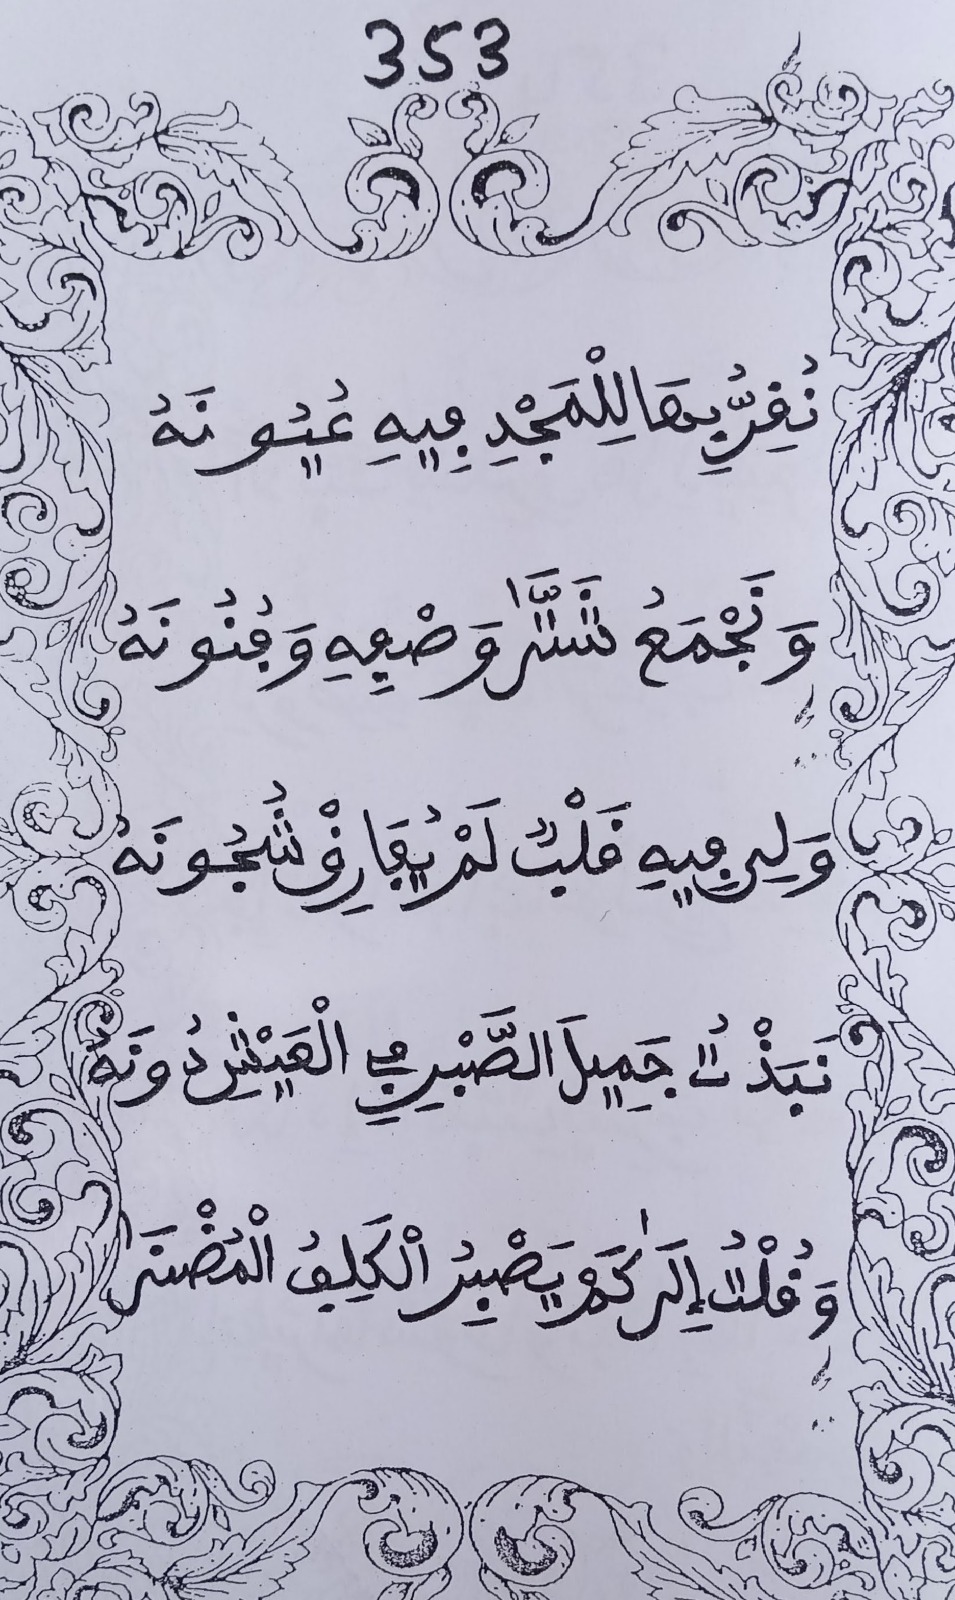 353
نُقِرُّ بِهَا لِلْمَجْدِ فِيهِ عُيُونَهُ
وَنَجْمَعُ شَتَّىٰ وَصْفِهِ وَفُنُونَهُ
وَلِي فِيهِ قَلْبٌ لَمْ يُفَارِقْ شُجُونَهُ
نَبَذْتُ جَمِيلَ الصَّبْرِ فِي الْعَيْشِ دُونَهُ
وَقُلْتُ إِلَىٰ كَمْ يَصْبِرُ الْكَلِفُ الْمُضْنَىٰ